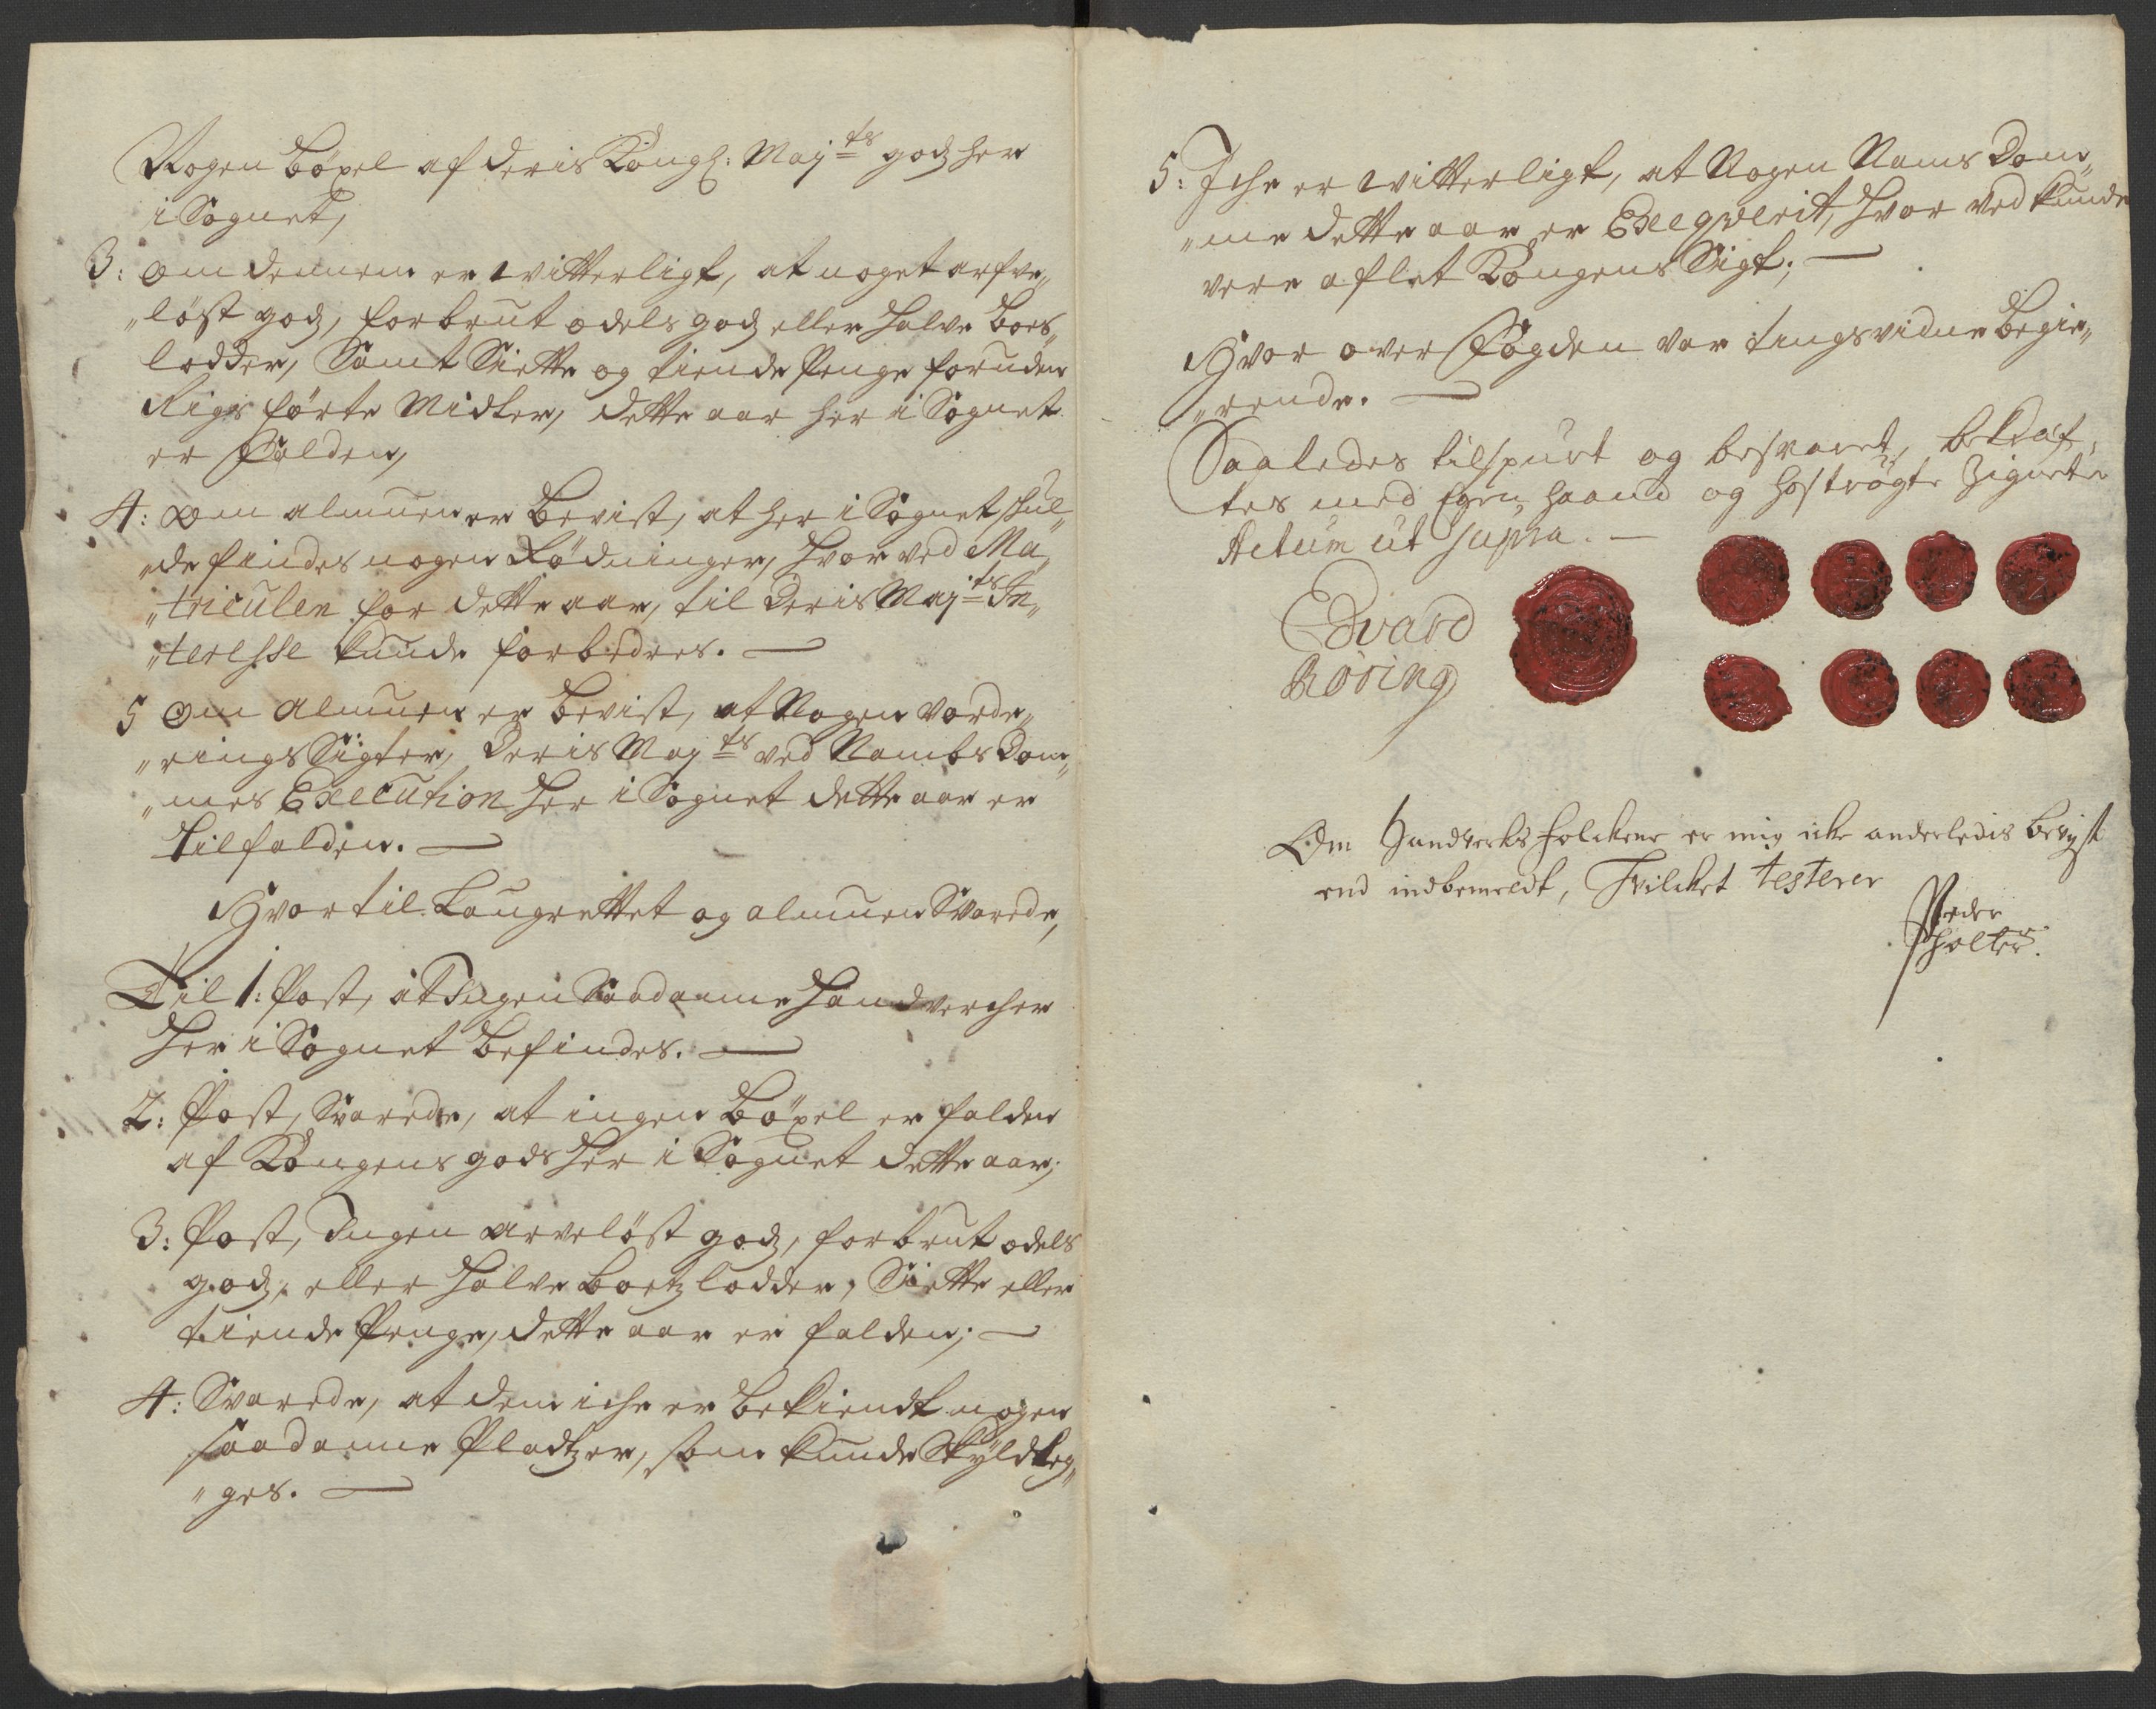 Nogen Böxel af deris Kongl: Maj<sup>ts</sup> godz her
i Sognet,
3: Om dennem er witterligt, at noget arfve„
„löst godz, forbrut odels godz eller halve Boes„
lodder, Samt Siette og tiende Penge foruden
Rigs förte Midler, dette aar her i Sognet
er falden,
4: Om almuen er bevist, at her i Sognet skul„
„de findes nogen Rödninger, hvor ved Ma„
„triculen for dette aar, til Deris Maj<sup>ts</sup> In„
„teresse kunde forbedres. —
5 Om Almuen er bevist, at Nogen Vorde„
„rings Sigter, Deris Maj<sup>ts</sup> ved Nambs Dom„
„mes Execution her i Sognet dette aar er
tilfalden. —
Hvortil Laugrettet og almuen Svarede,
Til 1: Post, at Ingen Saadanne Handvercher
her i Sognet befindes. —
2: Post, Svarede, at ingen Böxel er falden
af Kongens gods her i Sognet dette aar;
3: Post, Ingen arvelöst godz, forbrut odels
godz, eller halve Boetz lodder, Siette eller
tiende Penge, dette aar er falden; —
4: Svarede, at dem iche er bekiendt nogen
saadanne Pladtzer, som kunde Skyldleg„
„ges. —
5: Iche er witterligt, at Nogen Nams Dom„
„me dette aar er Exeqverit, hvor ved kunde
vere aflet Kongens Sigt; —
Hvor over Fogden var tingsvidne begie„
„rende. —
Saaledes tilspurt og besvaret, bekraf„
tes med Egen haand og hoströgte Zigneter
Actum ut supra. —
Edvard
Röring
Om Handverks folckene er mig icke anderledis bevist
end indbemeldt, Hvilcket testerer
Peder
Holter.